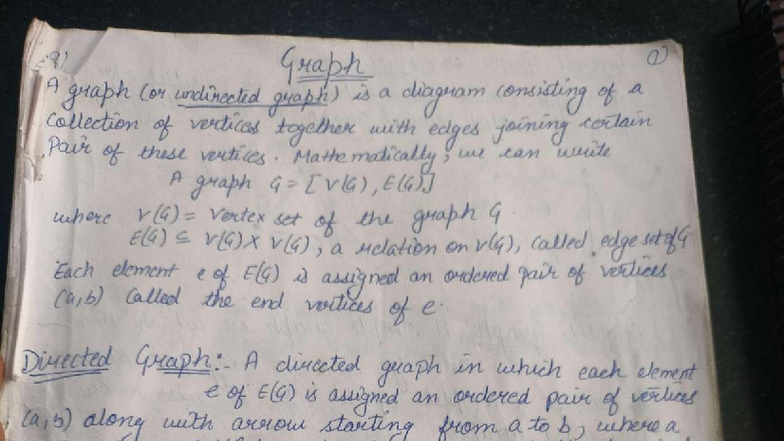 Graph
①
A graph (or undirected graph) is a diagram consisting of a
collection of vertices together with edges joining certain
Pair of these vertices. Mathematically, we can write
A graph G = [V(G), E(G)]
where V(G) = Vertex set of the graph G
E(G) ⊆ V(G) X V(G), a relation on V(G), called edge set of G
Each element e of E(G) is assigned an ordered pair of vertices
(a,b) called the end vertices of e.
Directed Graph:- A directed graph in which each element
e of E(G) is assigned an ordered pair of vertices
(a,b) along with arrow starting from a to b, where a